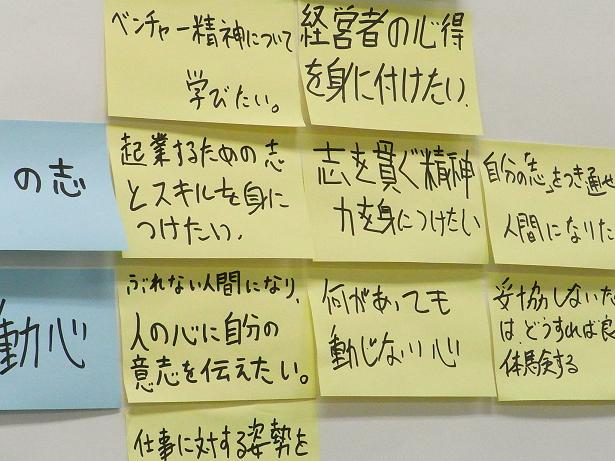 ベンチャー精神について
学びたい。
経営者の心得
を身に付けたい.
の志
起業するための志
とスキルを身に
つけたい.
志を貫く精神
力を身につけたい
自分の「志」をつき通せ
人間になりた
動心
ぶれない人間になり、
人の心に自分の
意志を伝えたい。
何があっても
動じない心
妥協しないた
は、どうすれば良
体験する
仕事に対する姿勢を